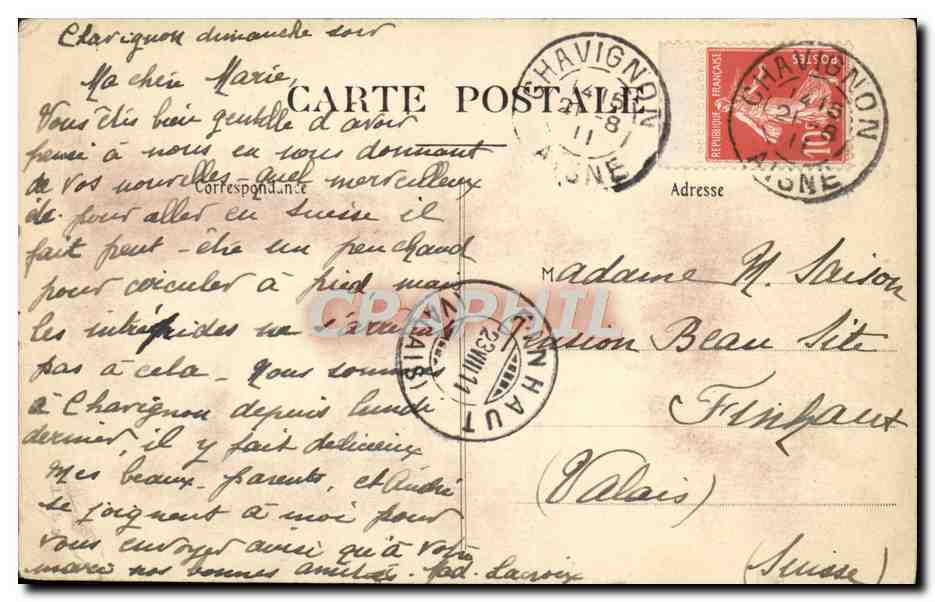 Chavignon dimanche soir
Ma chère Marie,
CARTE POSTALE
Vous êtes bien gentille d'avoir
pensé à nous en nous donnant
de vos nouvelles quel merveilleux
Correspondance
été pour aller en Suisse il
fait peut-être un peu chaud
pour circuler à pied mais
les intrépides ne s'arrêtent
pas à cela - Nous sommes
à Chavignon depuis lundi
dernier, il y fait délicieux
Mes beaux-parents, et André
se joignent à moi pour
vous envoyer ainsi qu'à votre
mari nos bonnes amitiés. Mad. Lacroix
CHAVIGNON
21-8
11
AISNE
REPUBLIQUE FRANÇAISE
POSTES
10c
CHAVIGNON
14 15
21-8
11
AISNE
Adresse
Madame M. Saison
Pension Beau Site
Finhaut
(Valais)
(Suisse)
FINHAUT
23 VIII 11
(VALAIS)
CPAPHIL